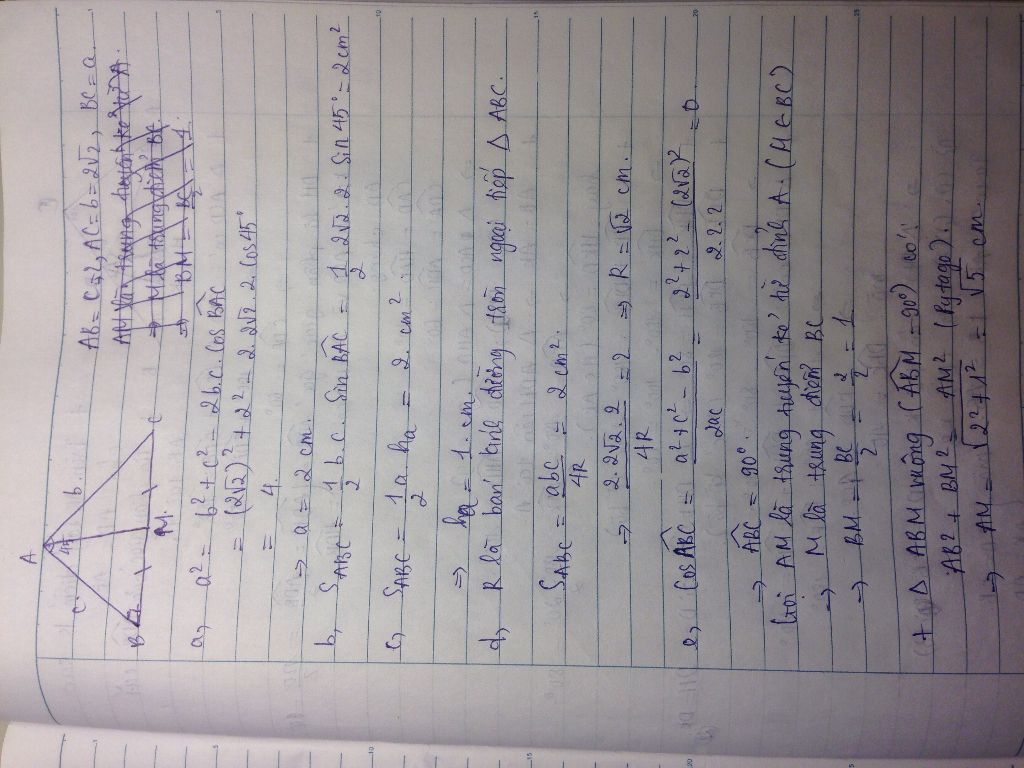 A
45°
c
b
B
M.
C
AB = c = 2, AC = b = 2√2, BC = a.
AM là trung tuyến kẻ từ A
⇒ M là trung điểm BC
⇒ BM = BC/2 = 1.
a, a² = b² + c² - 2b.c. cos BAC
= (2√2)² + 2² - 2. 2√2. 2. cos 45°
= 4.
→ a = 2 cm.
b, S_ABC = 1/2 b. c. sin BAC = 1/2 . 2√2. 2. sin 45° = 2 cm²
c, S_ABC = 1/2 a. ha = 2. cm².
⇒ ha = 1. cm.
d, R là bán kính đường tròn ngoại tiếp Δ ABC.
S_ABC = abc/4R = 2 cm².
→ 2.2√2.2/4R = 2 → R = √2 cm.
e, Cos ABC = a² + c² - b²/2ac = 2² + 2² - (2√2)²/2.2.2 = 0
→ ABC = 90°.
Gọi AM là trung tuyến kẻ từ đỉnh A. (M ∈ BC)
→ M là trung điểm BC
→ BM = BC/2 = 2/2 = 1
(+ Δ ABM vuông (ABM = 90°) có:
AB2 + BM² = AM² (Pytago).
→ AM = √2² + 1² = √5 cm.